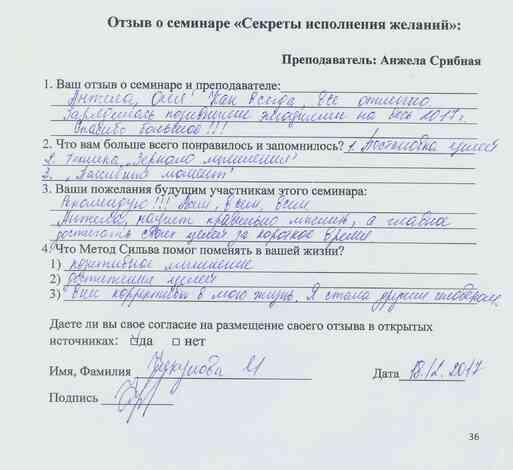 Отзыв о семинаре «Секреты исполнения желаний»:
Преподаватель: Анжела Срибная
1. Ваш отзыв о семинаре и преподавателе:
Анжела, Оля! Как всегда, все отлично.
Зарядилась позитивными эмоциями на весь 2017 г.
Спасибо большое!!!
2. Что вам больше всего понравилось и запомнилось? 1. Постановка целей
2. Техника „Зеркало мышления"
3. „ момент"
3. Ваши пожелания будущим участникам этого семинара:
Рекомендую!!! Всем, всем, всем
Анжела, научит правильно мыслить, а главное
достигать своих целей за короткое время
4. Что Метод Сильва помог поменять в вашей жизни?
1) позитивное мышление
2) достижения целей
3) коррективы в мою жизнь. Я стала другим человеком
Даете ли вы свое согласие на размещение своего отзыва в открытых
источниках: да нет
Имя, Фамилия И Дата 2017
Подпись
36